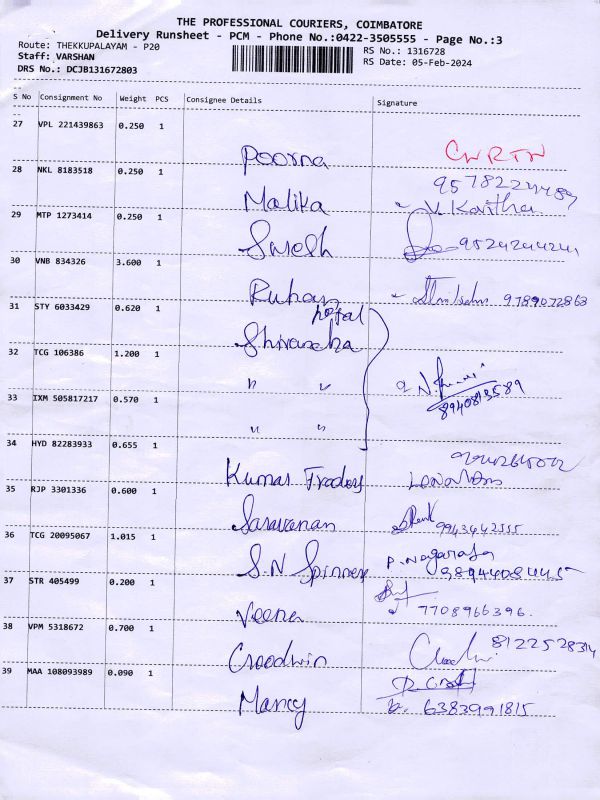 THE PROFESSIONAL COURIERS, COIMBATORE
Delivery Runsheet - PCM - Phone No.:0422-3505555 - Page No.:3
Route: THEKKUPALAYAM - P20
RS No.: 1316728
Staff: VARSHAN
RS Date: 05-Feb-2024
DRS No.: DCJB131672803
S No Consignment No Weight PCS Consignee Details Signature
27 VPL 221439863 0.250 1
Poorna
28 NKL 8183518 0.250 1
Malika V. Kavitha
29 MTP 1273414 0.250 1
Suresh 9524244241
30 VNB 834326 3.600 1
Ruhan 9789072863
31 STY 6033429 0.620 1
32 TCG 106386 1.200 1
" "
8940813589
33 IXM 505817217 0.570 1
" "
34 HYD 82283933 0.655 1
Kumar
35 RJP 3301336 0.600 1
Saravanan 9943442555
36 TCG 20095067 1.015 1
S.N P. Nagaraja
37 STR 405499 0.200 1
Veena 7708966396.
38 VPM 5318672 0.700 1
8122528314
Goodwin
39 MAA 108093989 0.090 1
Mancy 6383991815